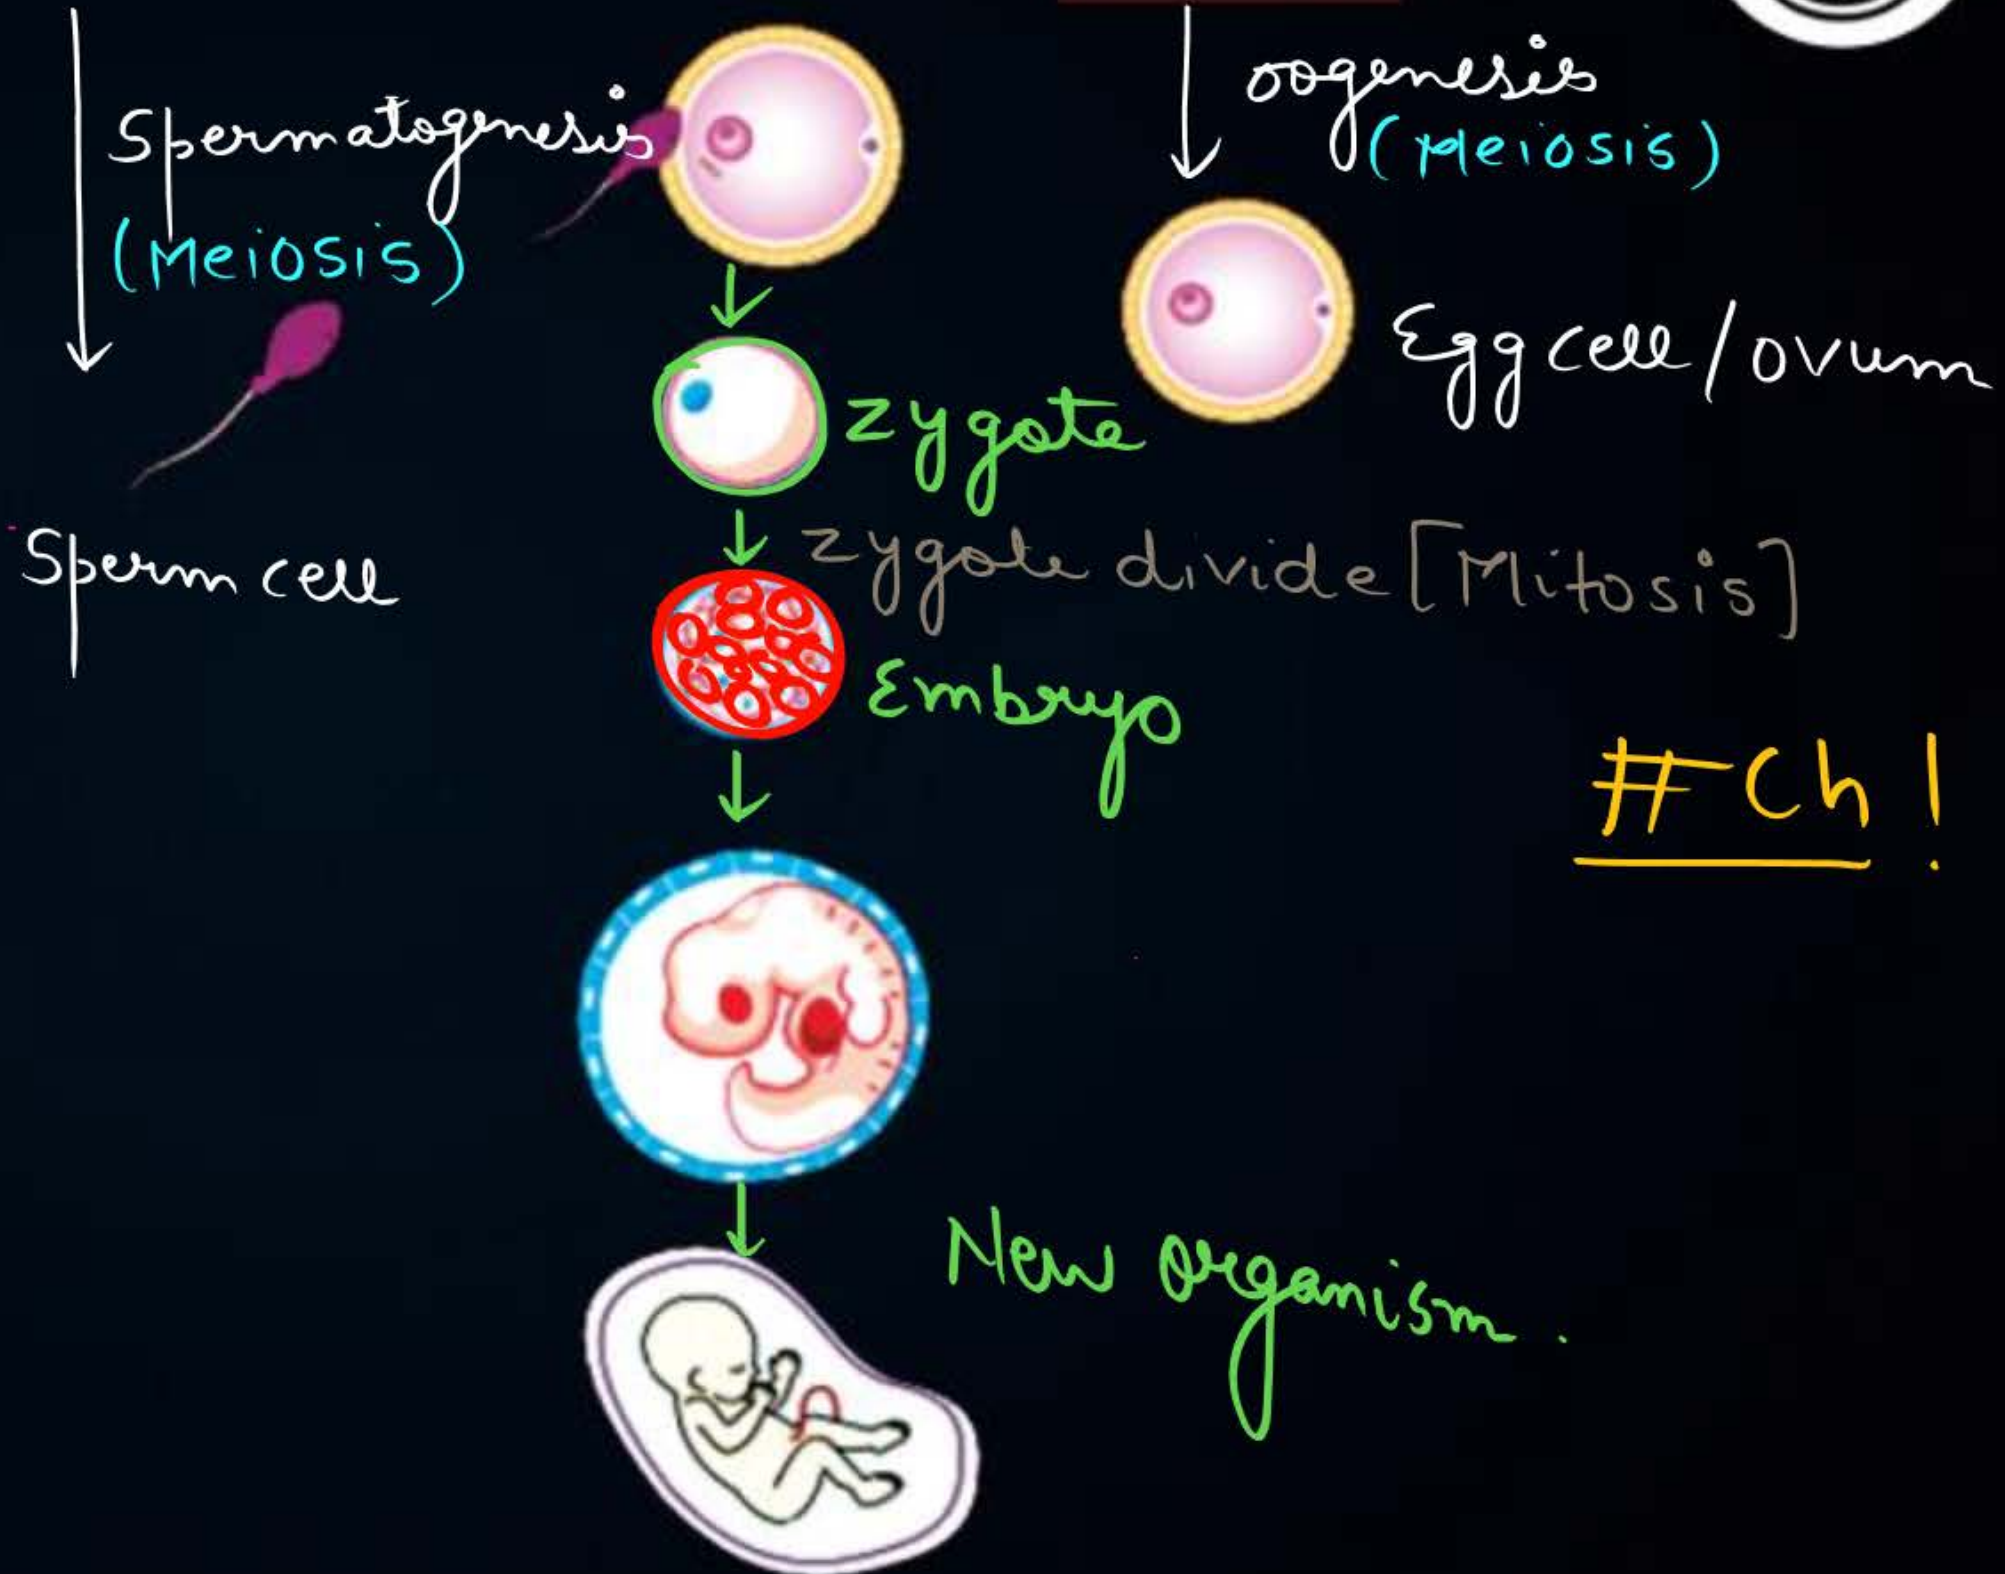 Spermatogenesis
(Meiosis)
Sperm cell
oogenesis
(Meiosis)
Egg cell / ovum
zygote
zygote divide [Mitosis]
Embryo
# Ch !
New organism .